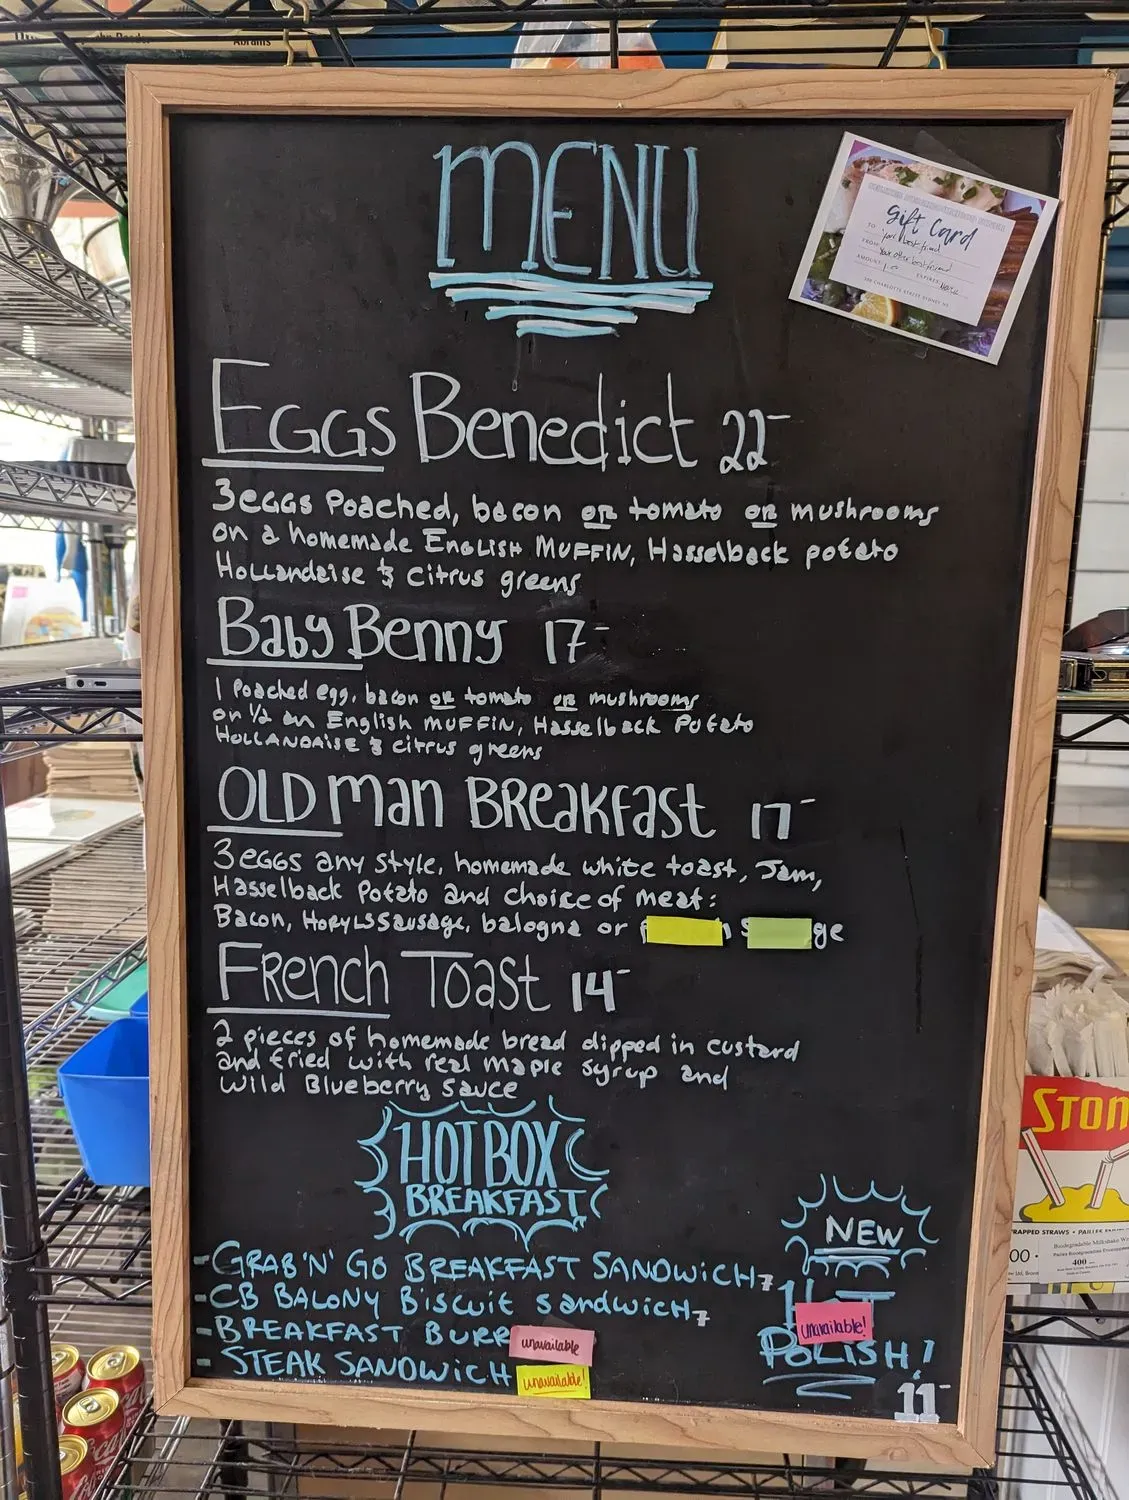 Abrams
MENU
Gift Card
TO your best friend
FROM your other best friend
AMOUNT
EXPIRES
CHARLOTTE STREET SYDNEY NS
EGGS Benedict 22-
3 eggs Poached, bacon or tomato or mushrooms
on a homemade ENGLISH MUFFIN, Hasselback potato
Hollandaise & citrus greens
Baby Benny 17-
1 Poached egg, bacon or tomato or mushrooms
on 1/2 an English MUFFIN, Hasselback Potato
HOLLANDAISE & citrus greens
OLD Man BREakfast 17-
3 EGGS any style, homemade white toast, Jam,
Hasselback Potato and choice of meat:
Bacon, HORYLS Sausage, balogna or
ge
FRENCH Toast 14-
2 pieces of homemade bread dipped in custard
and fried with real maple syrup and
Wild Blueberry sauce
HOT BOX
BREAKFAST
-GRAB 'N' GO BREAKFAST SANDWICH 7
-CB BALONY Biscuit sandwich 7
-BREAKFAST BURR unavailable
- STEAK SANDWICH unavailable!
NEW
unavailable!
POLISH!
11-
STON
RAPPED STRAWS
Biodegradable Milkshake
400